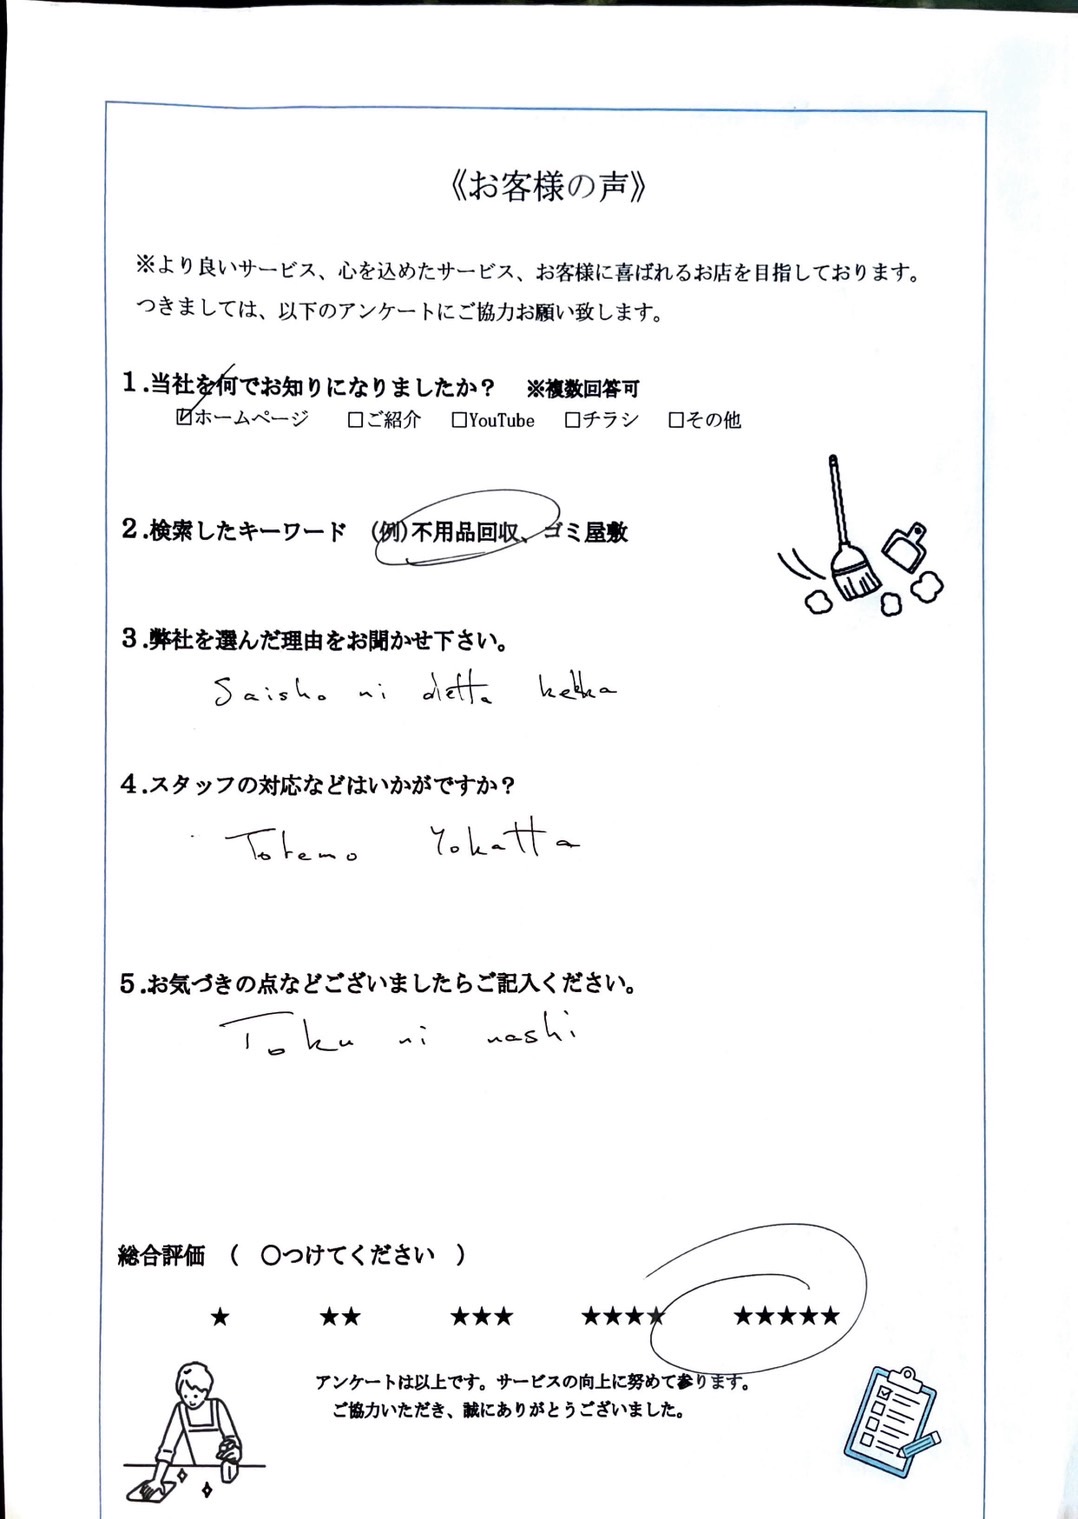 《お客様の声》
※より良いサービス、心を込めたサービス、お客様に喜ばれるお店を目指しております。
つきましては、以下のアンケートにご協力お願い致します。
1.当社を何でお知りになりましたか？　※複数回答可
☑ホームページ　□ご紹介　□YouTube　□チラシ　□その他
2.検索したキーワード　(例)不用品回収、ゴミ屋敷
3.弊社を選んだ理由をお聞かせ下さい。
Saisho ni detta kekka
4.スタッフの対応などはいかがですか？
Totemo Yokatta
5.お気づきの点などございましたらご記入ください。
Toku ni nashi
総合評価　(　〇つけてください　)
★　★★　★★★　★★★★　★★★★★
アンケートは以上です。サービスの向上に努めて参ります。
ご協力いただき、誠にありがとうございました。